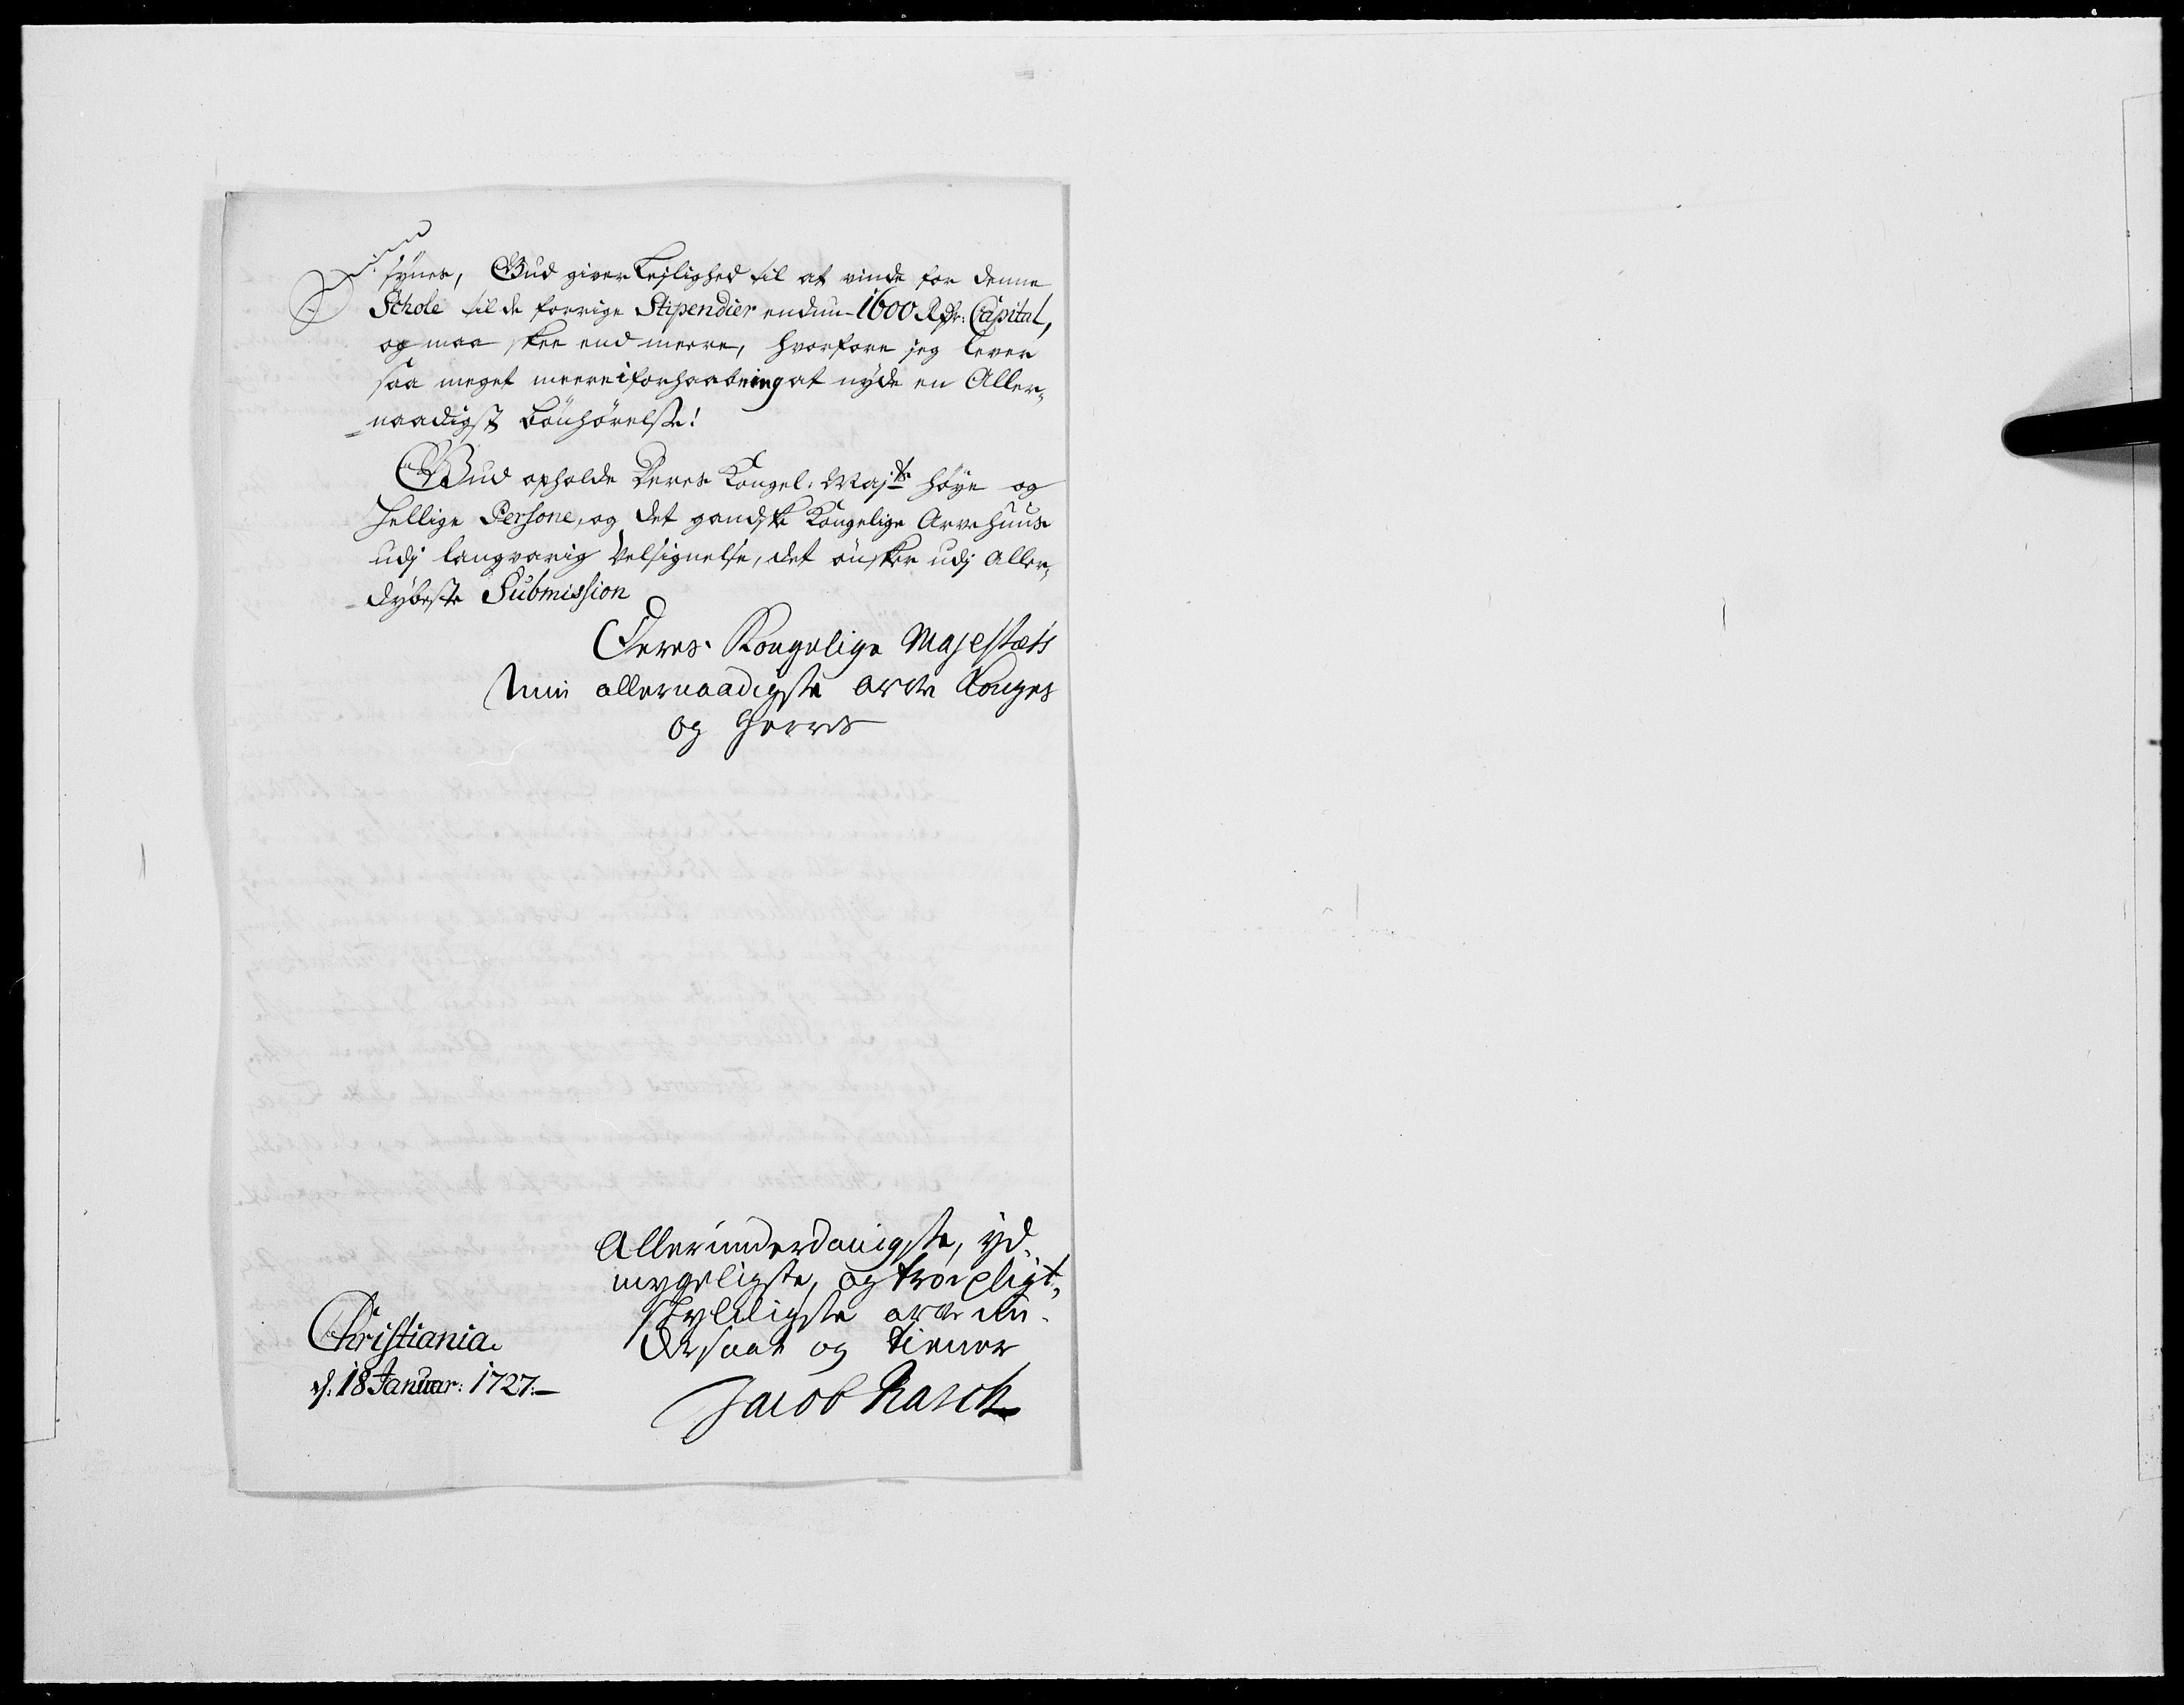 synes, Gud giver Lejlighed til at vinde for denne
Schole til de forrige Stipendier endnu 1600 Rdr: Capital,
og maa skee end meere, hvorfore jeg lever
saa meget meere i forhaabning at nyde en Aller-
naadigst bönhörelse!
Gud opholde Deres Kongel: Maj:ts höye og
hellige Persone, og det gandske Kongelige Arvehuus
udj langvarig Velsignelse, det önsker udj Aller-
dybeste Submission
Deres Kongelige Majestæts
Min allernaadigste arve Konges
og Herres
Allerunderdanigste, yd-
mygeligste, og troepligt-
skyldigste arve un-
dersaat og tiener
Jacob Rasch
Christiania
d: 18 Januar: 1727.